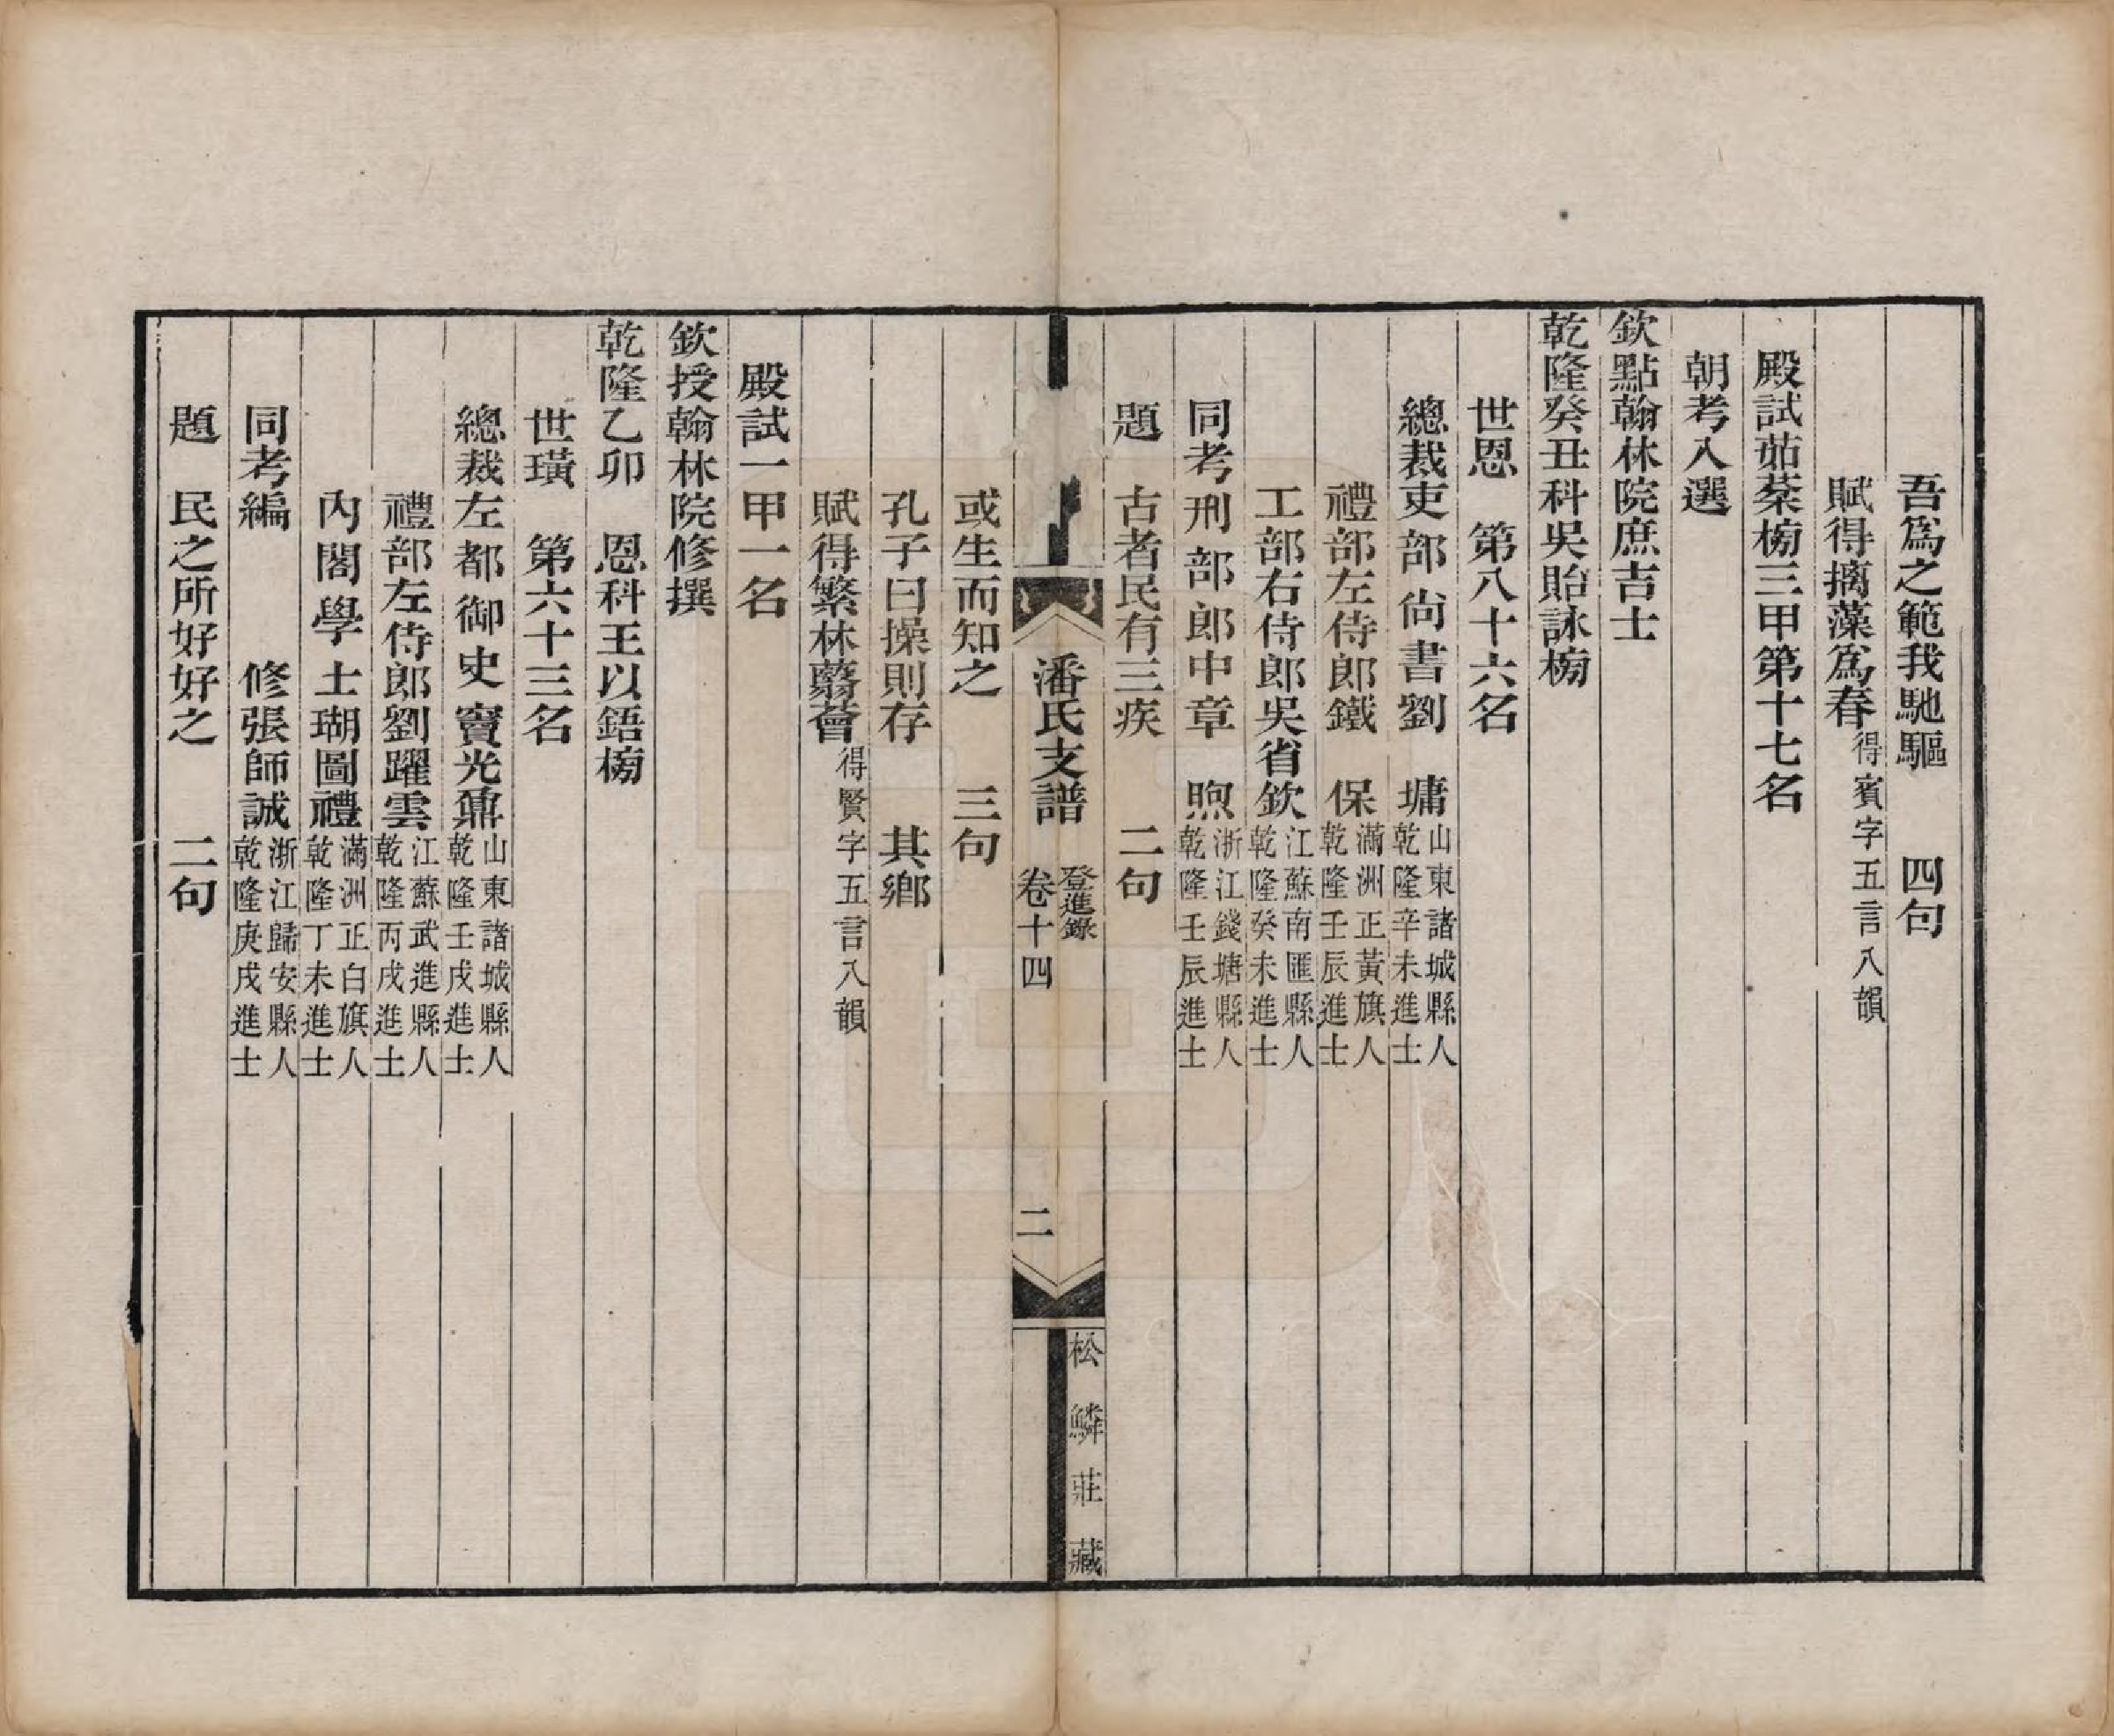 吾爲之範我馳驅　四句
賦得摛藻爲春得賓字五言八韻
殿試茹棻榜三甲第十七名
朝考入選
欽點翰林院庶吉士
乾隆癸丑科吳貽詠榜
世恩　第八十六名
總裁吏部尙書劉　墉山東諸城縣人乾隆辛未進士
禮部左侍郎鐵　保滿洲正黃旗人乾隆壬辰進士
工部右侍郎吳省欽江蘇南匯縣人乾隆癸未進士
同考刑部郎中章　煦浙江錢塘縣人乾隆壬辰進士
題　古者民有三疾　二句
潘氏支譜　登進錄　卷十四　二
松鱗莊藏
或生而知之　三句
孔子曰操則存　其鄉
賦得繁林蘙薈得賢字五言八韻
殿試一甲一名
欽授翰林院修撰
乾隆乙卯　恩科王以鋙榜
世璜　第六十三名
總裁左都御史竇光鼐山東諸城縣人乾隆壬戌進士
禮部左侍郎劉躍雲江蘇武進縣人乾隆丙戌進士
內閣學士瑚圖禮滿洲正白旗人乾隆丁未進士
同考編　修張師誠浙江歸安縣人乾隆庚戌進士
題　民之所好好之　二句